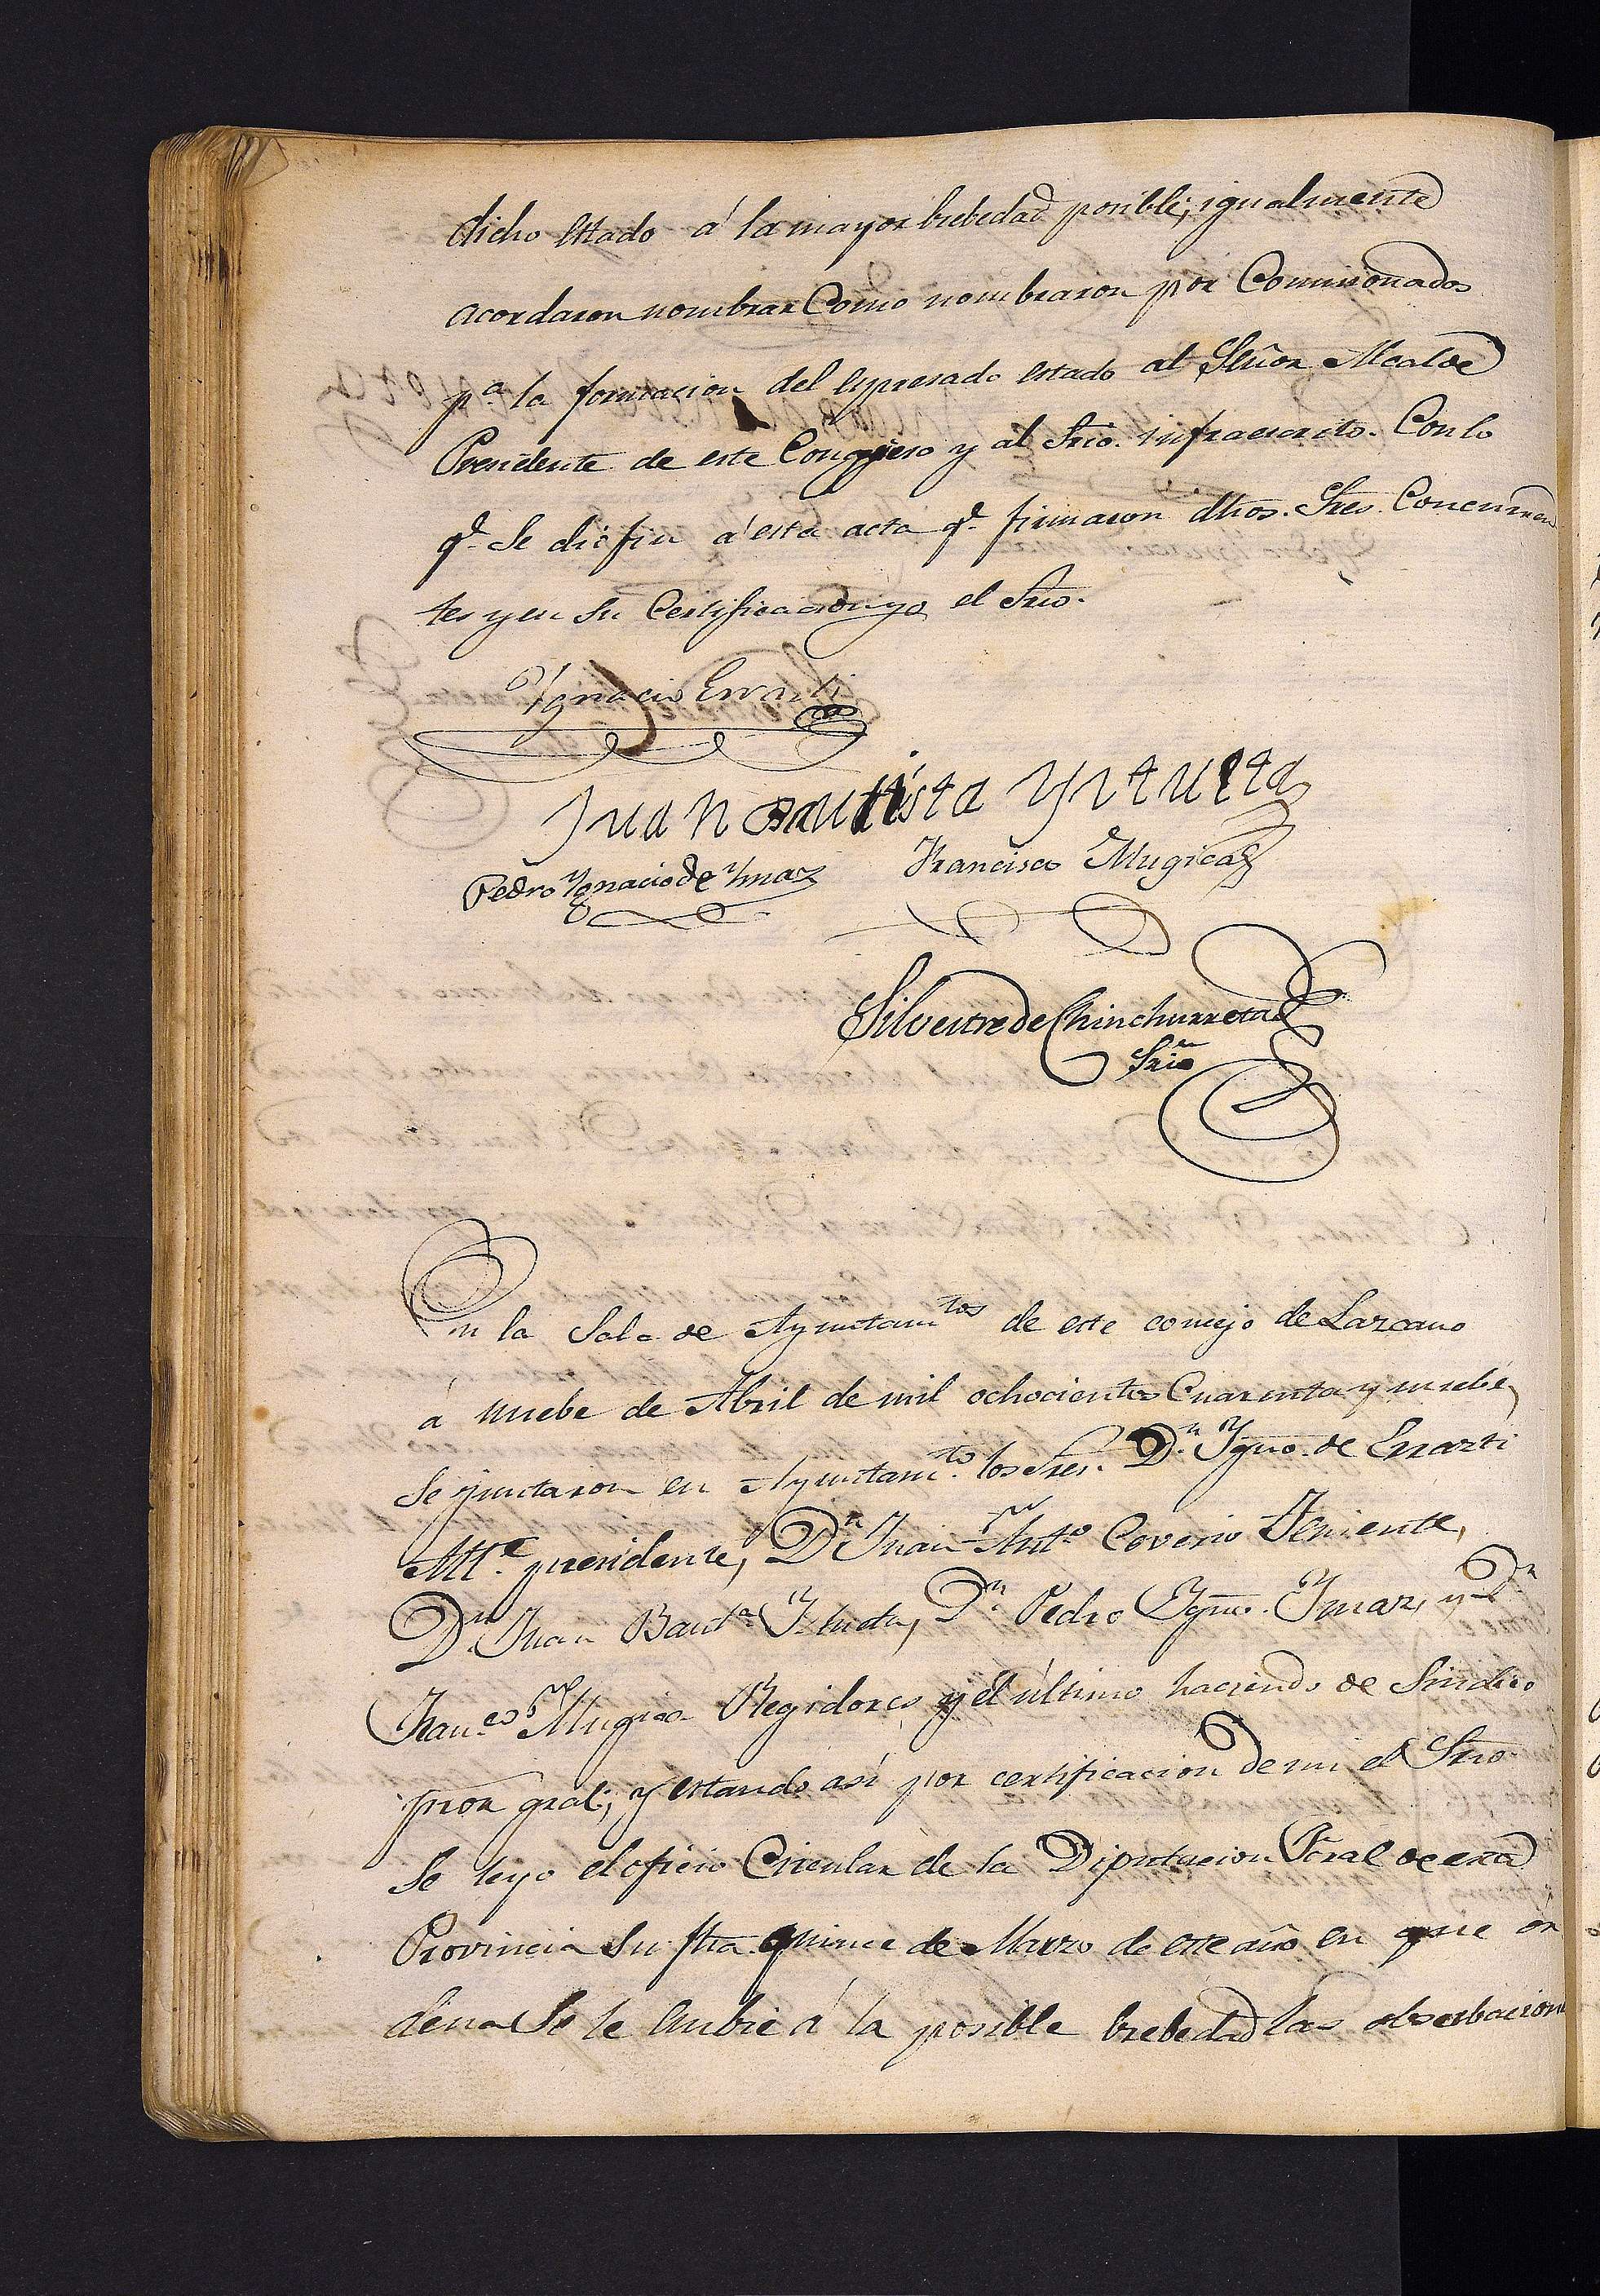 dicho estado á la mayor brebedad posible; igualmente
acordaron nombrar como nombraron por Comisionados
pª la formacion del espresado estado al Señor Alcalde
Presidente de este Congreso y al Srio. infraescrito. Con lo
qe. Se dió fin á esta acta qe. firmaron dhos. Sres. Concurren
tes y en su Certificacion yo el Srio.
Ygnacio Errasti
Juan Bautista Yztueta
Pedro Ygnacio de Ymaz Francisco Mugica
Silvestre de Chinchurreta
Srio
En la Sala de Ayuntamtos de este concejo de Lazcano
á nuebe de Abril de mil ochocientos Cuarenta y nuebe,
Se juntaron en Ayuntamto. los Sres. Dn. Ygno. de Errazti
Alle. presidente, Dn. Juan Anto. Teniente,
Dn. Juan Bauta. Iztueta, Dn. Pedro Ygno. Imaz, y Dn
Franco. Mugica Regidores y el último haciendo de Sindico
pror gral; y estando así por certificacion de mi el Srio
Se leyo el oficio Circular de la Diputacion Foral de esta
Provincia Su fha. quince de Marzo de este año en que or
dena Se le enbie á la posible brebedad las obserbacion